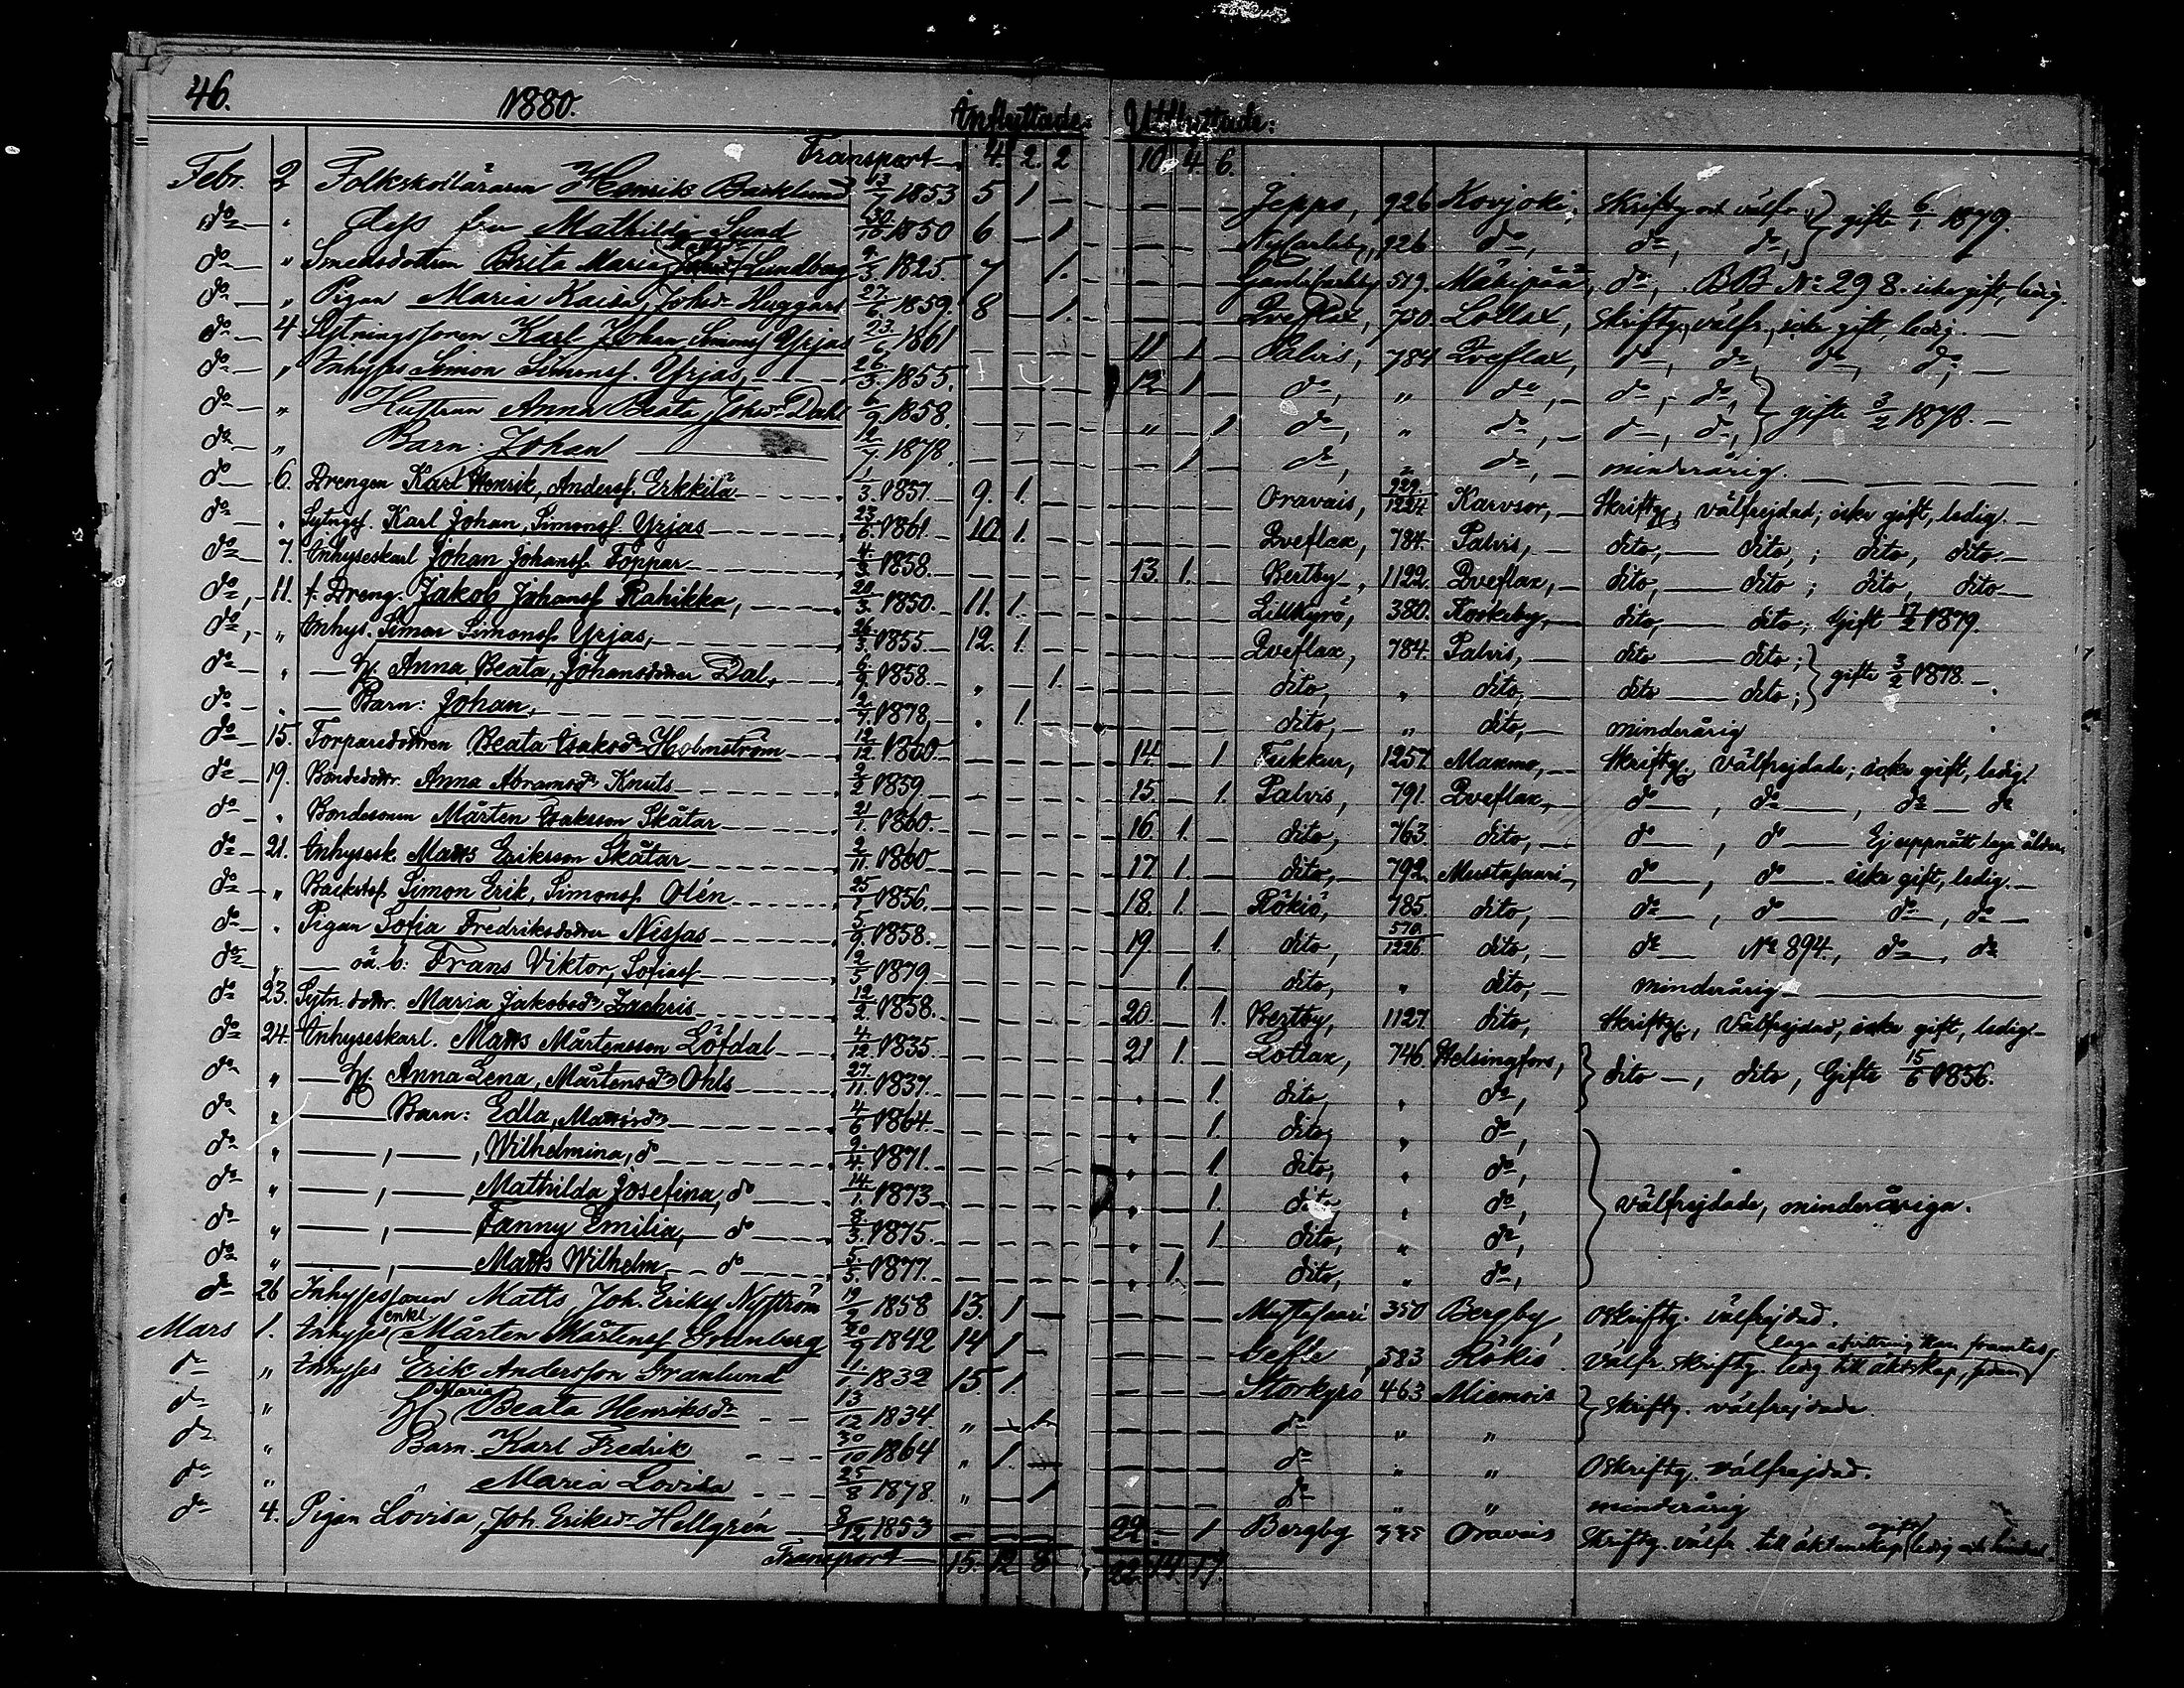 46.
1880.
Inflyttade: Utflyttade:
Transport 4. 2. 2 10. 4. 6.
Febr. 2 Folkskolläraren Henrik Backlund 13/7 1853 5 1 — — Jeppo, 926 Kovjoki, skriftg. och välfr. } gifte 6/1 1879.
do — " dess fru Mathilda Sund 30/10 1850 6 — 1. — Nycarleby, 926 do, do, do, }
do — " Smedsdottren Brita Maria Lundberg 9/3 1825. 7 1. — Gamlakarleby 519. Mäkipää, do, BB No 298. icke gift, ledig.
do — " Pigan Maria Kaisa, Johsdr Huggars 27/6 1859. 8 — 1. — Qveflax, 750. Lotlax, skriftg., välfr., icke gift, ledig. —
do — 4 Sytningssonen Karl Johan Simonss. Yrjas 23/6 1861 — 11 1 — Palvis, 784 Qveflax, do, do, do, do, —
do — " Inhyses Simon Simonss. Yrjas, 26/3 1855. — 12. 1. — do, " do, — do, do, } gifte 3/2 1878. —
do — " Hustrun Anna Beata Johsdr Dahl 6/9 1858. — " — 1. do, " do, — do, do, }
do — " Barn: Johan 2/7 1878. — 1 — do, " do, — minderårig.
do — 6. Drengen Karl Henrik, Anderss. Erkkilä 1/3. 1857. — 9. 1. — Oravais, 929/1224 Karvsor, — Skriftg., välfrejdad; icke gift, ledig. —
do — " Sytngss. Karl Johan, Simonss. Yrjas 23/6. 1861. — 10. 1. — Qveflax, 784. Palvis, — dito, — dito, ; dito, dito. —
do — 7. Inhyseskarl Johan Johanss. Toppar 4/3 1858. — 13. 1. — Bertby —, 1122. Qveflax, — dito, — dito ; dito, dito —
do, — 11. f. Dreng. Jakob Johanss. Rahikka, 20/3. 1850. — 11. 1. — Lillkyrö, 380. Kookeby, — dito, — dito; Gift 17/2 1879.
do, — " Inhys. Simon Simonss. Yrjas, 26/3. 1855. — 12. 1. — Qveflax, 784. Palvis, — dito — dito; } gifte 3/2 1878. —
do — " — H. Anna Beata, Johansdotter Dal, 6/9. 1858. — " — 1. — dito, " dito, — dito — dito; }
do — " — Barn: Johan, 2/7. 1878, — " 1. — dito, — " dito, — minderårig
do — 15. Torparedottren Beata Isaksdr Holmström 12/12. 1860. — 14. — 1 Tukkur, 1257. Maxmo, — Skriftg., välfrejdade; icke gift, ledig.
do — 19. Bondedottr. Anna Abramsdr Knuts 2/2 1859 — 15. — 1. Palvis, 791. Qveflax, — do —, do —, do — do
do — " Bondesonen Mårten Isaksson Skåtar 21/1. 1860. — 16. 1. — dito, 763. dito, — do —, do — Ej uppnått laga ålder.
do — 21. Inhysesk. Matts Eriksson Skåtar 2/11. 1860 — 17 1. — dito, — 792. Mustasaari —, do —, do — icke gift, ledig. —
do — " Backstss. Simon Erik, Simonss. Olén 25/1 1856. — 18. 1. — Rökiö, 785. dito, — do —, do — do —, do —
do — " Pigan Sofia Fredriksdotter Nissas 5/9. 1858. — 19. — 1. dito, 570/1226. dito, — do — No 894., do —, do
do — " — oä. b: Frans Viktor, Sofiass. 2/5 1879. — 1. — dito, " dito, — minderårig —
do 23. Sytn. dottr. Maria Jakobsdr Zachris 12/2. 1858. — 20. — 1. Bertby, 1127. dito, Skriftg., Välfrejdad, icke gift, ledig. —
do 24. Inhyseskarl. Matts Mårtensson Löfdal 4/12. 1835. — 21 1. — Lotlax, 746. Helsingfors, } dito —, dito, Gifte 15/6 1856.
do " — H. Anna Lena, Mårtensdr Ohls 27/11. 1837. — " 1. dito, " do, }
do " — Barn: Edla, Mattsdr 4/6 1864. — " 1. dito, " do, }
do " — , — , Wilhelmina, do 9/4. 1871. — " 1. dito, " do, }
do " — , — Mathilda Josefina, do 14/1. 1873 — " — 1. dito, " do, } välfrejdade, minderåriga.
do " — , — Fanny Emilia, — do 8/3. 1875. — " 1. dito, " do, }
do " — , — Matts Wilhelm, — do 5/5. 1877. — " 1. — dito, " do, }
do 26 Inhysessonen Matts, Joh. Erikss Nyström 19/2 1858 13. 1 — Mustasaari 350 Bergby Oskriftg. välfrejdad.
Mars 1. Inhyses enkl. Mårten Mårtenss Granberg 20/9 1842 14 1 — Gefle 383 Rökiö Välfr. skriftg. ledig till äktskap, sedan laga afvittring kan framtes.
do " Inhyses Erik Andersson Granlund 1/1 1832 15 1. — Storkyrö 463 Miemois } skriftg. välfrejdade.
do " H. Maria Beata Henriksdr 13/12 1834. " — 1. do " " }
do " Barn. Karl Fredrik 30/10 1864 " 1. — do " " Oskriftg. välfrejdad.
do " Maria Lovisa 25/8 1878. " — 1 do " " minderårig
do 4. Pigan Lovisa, Joh. Eriksdr Hellgrén 8/12 1853 — 22. — 1 Bergby 335 Oravais Skriftg. välfr. till äktenskap ledig
Transport 15. 12 8 22. 14 17.